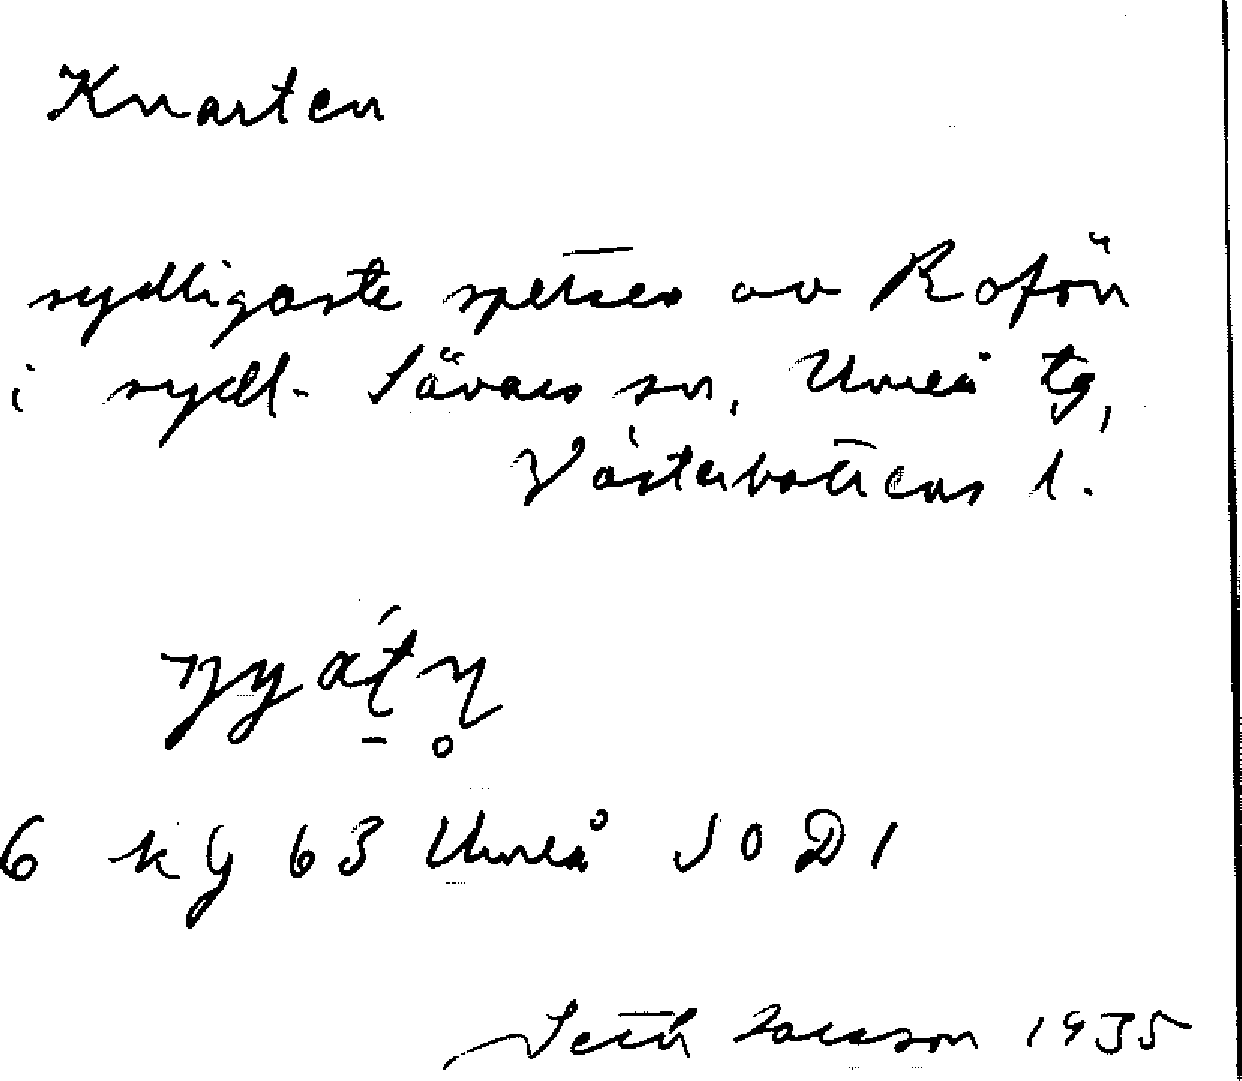 Knarten
sydligaste spetsen av Rofön
i sydl. Sävars sn, Umeå tg,
Västerbottens l.
6 kg 63 Umeå SO D1
Seth 1935